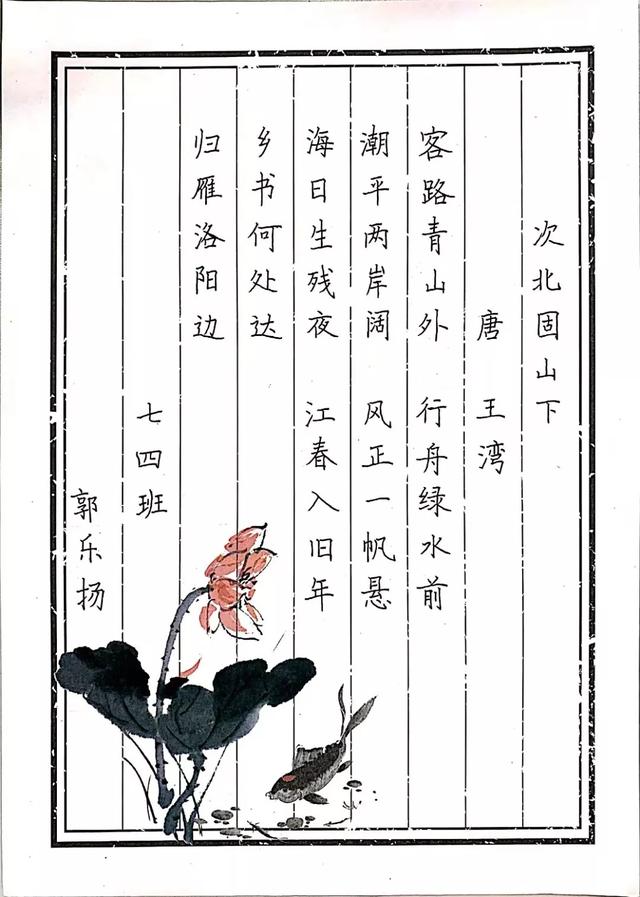 次北固山下
唐 王湾
客路青山外 行舟绿水前
潮平两岸阔 风正一帆悬
海日生残夜 江春入旧年
乡书何处达
归雁洛阳边
七四班
郭乐扬